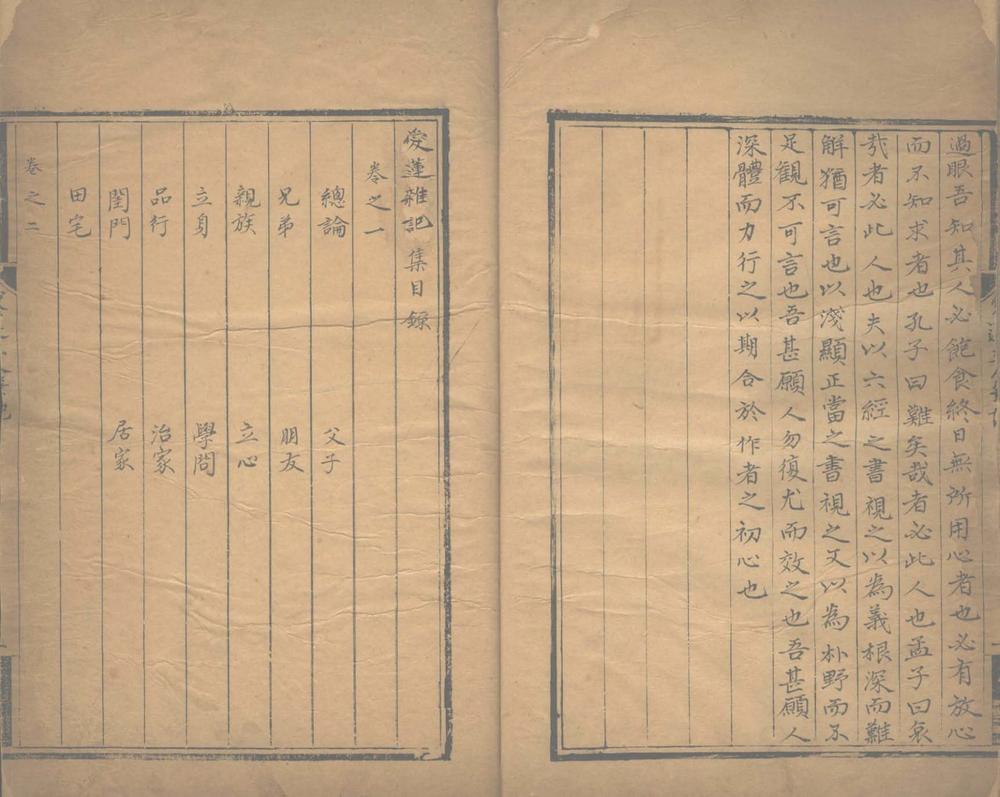 過眼吾知其人必飽食終日無所用心者也必有放心
而不知求者也孔子曰難矣哉者必此人也孟子曰哀
哉者必此人也夫以六經之書視之以為義根深而難
解猶可言也以淺顯正當之書視之又以為朴野而不
足觀不可言也吾甚願人勿復尤而效之也吾甚願人
深體而力行之以期合於作者之初心也
愛蓮雜記 集目錄
卷之一
總論 父子
兄弟 朋友
親族 立心
立身 學問
品行 治家
閨門 居家
田宅
卷之二